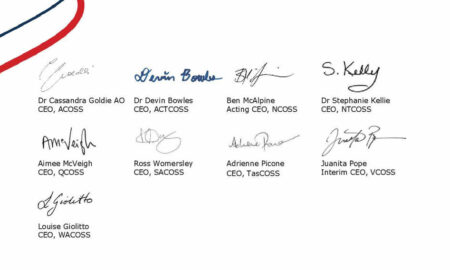 Devin Bowles
S. Kelly
Dr Cassandra Goldie AO
CEO, ACOSS
Dr Devin Bowles
CEO, ACTCOSS
Ben McAlpine
Acting CEO, NCOSS
Dr Stephanie Kellie
CEO, NTCOSS
AMcVeigh
Aimee McVeigh
CEO, QCOSS
Ross Womersley
CEO, SACOSS
Adrienne Picone
CEO, TasCOSS
Juanita Pope
Interim CEO, VCOSS
L Giolitto
Louise Giolitto
CEO, WACOSS